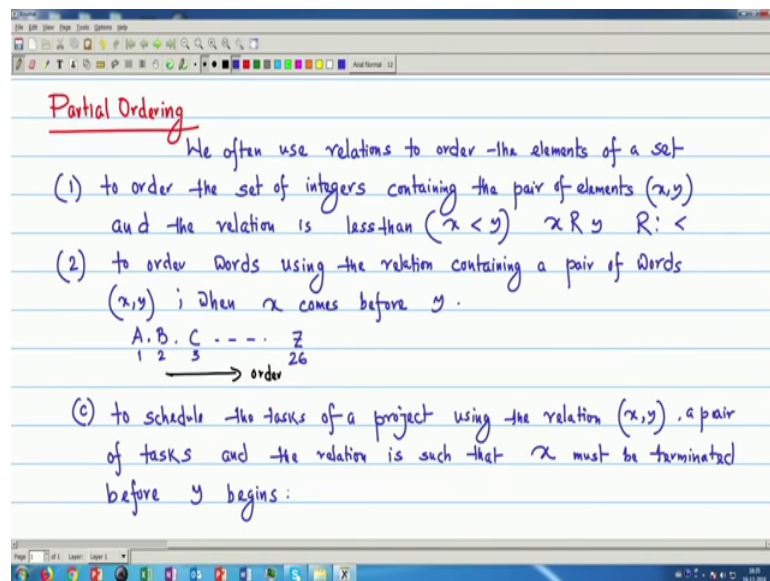 Journal
File Edit View Page Tools Options Help
Arial Normal 12
Partial Ordering
We often use relations to order the elements of a set
(1) to order the set of integers containing the pair of elements (x,y)
and the relation is less than (x < y) x R y R: <
(2) to order words using the relation containing a pair of words
(x,y) ; when x comes before y.
A. B. C - - - . Z
1 2 3 26
order
(c) to schedule the tasks of a project using the relation (x,y) . a pair
of tasks and the relation is such that x must be terminated
before y begins:
Page 1 of 1 Layer: Layer 1